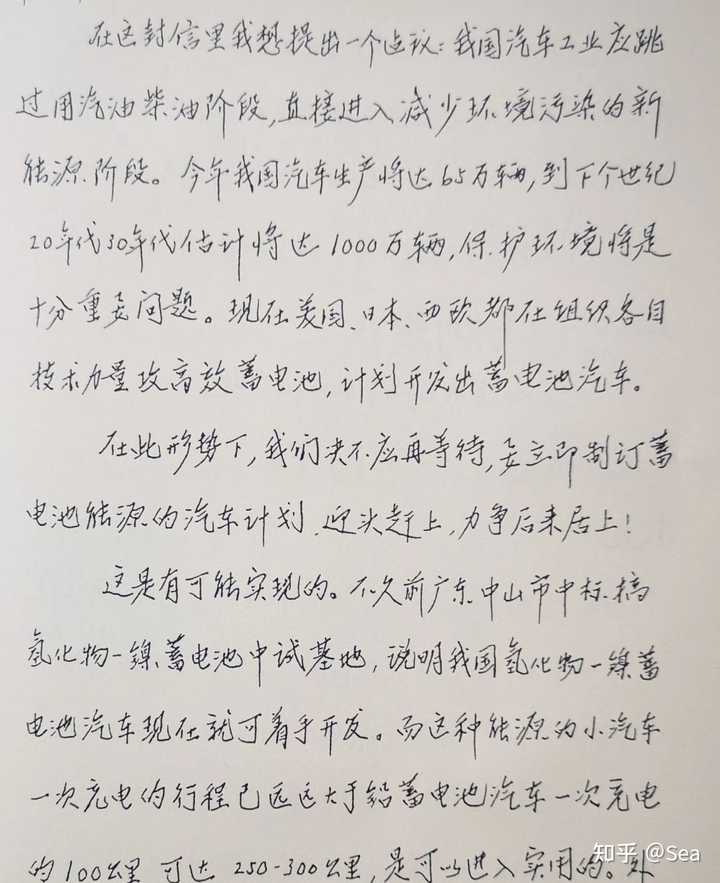 在这封信里我想提出一个建议：我国汽车工业应跳
过用汽油柴油阶段，直接进入减少环境污染的新
能源阶段。今年我国汽车生产将达65万辆，到下个世纪
20年代30年代估计将达1000万辆，保护环境将是
十分重要问题。现在美国、日本、西欧都在组织各自
技术力量攻高效蓄电池，计划开发出蓄电池汽车。
在此形势下，我们决不应再等待，要立即制订蓄
电池能源的汽车计划，迎头赶上，力争后来居上！
这是有可能实现的。不久前广东中山市中标搞
氢化物—镍蓄电池中试基地，说明我国氢化物—镍蓄
电池汽车现在就可着手开发。而这种能源的小汽车
一次充电的行程已远远大于铅蓄电池汽车一次充电
的100公里，可达250-300公里，是可以进入实用的。外
知乎 @Sea